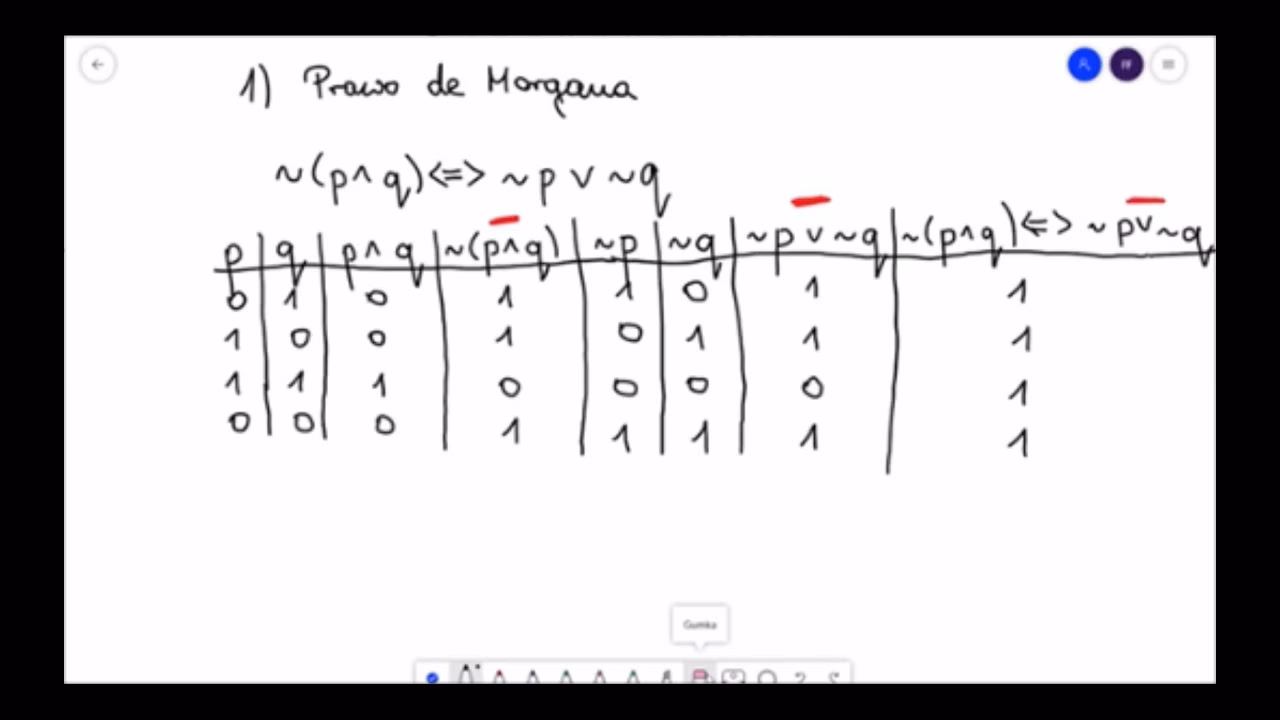 1) Prawo de Morgana
~(p ∧ q) <=> ~p ∨ ~q
p | q | p ∧ q | ~(p∧q) | ~p | ~q | ~p ∨ ~q | ~(p∧q) <=> ~p∨~q
0 | 1 | 0 | 1 | 1 | 0 | 1 | 1
1 | 0 | 0 | 1 | 0 | 1 | 1 | 1
1 | 1 | 1 | 0 | 0 | 0 | 0 | 1
0 | 0 | 0 | 1 | 1 | 1 | 1 | 1
Gumka